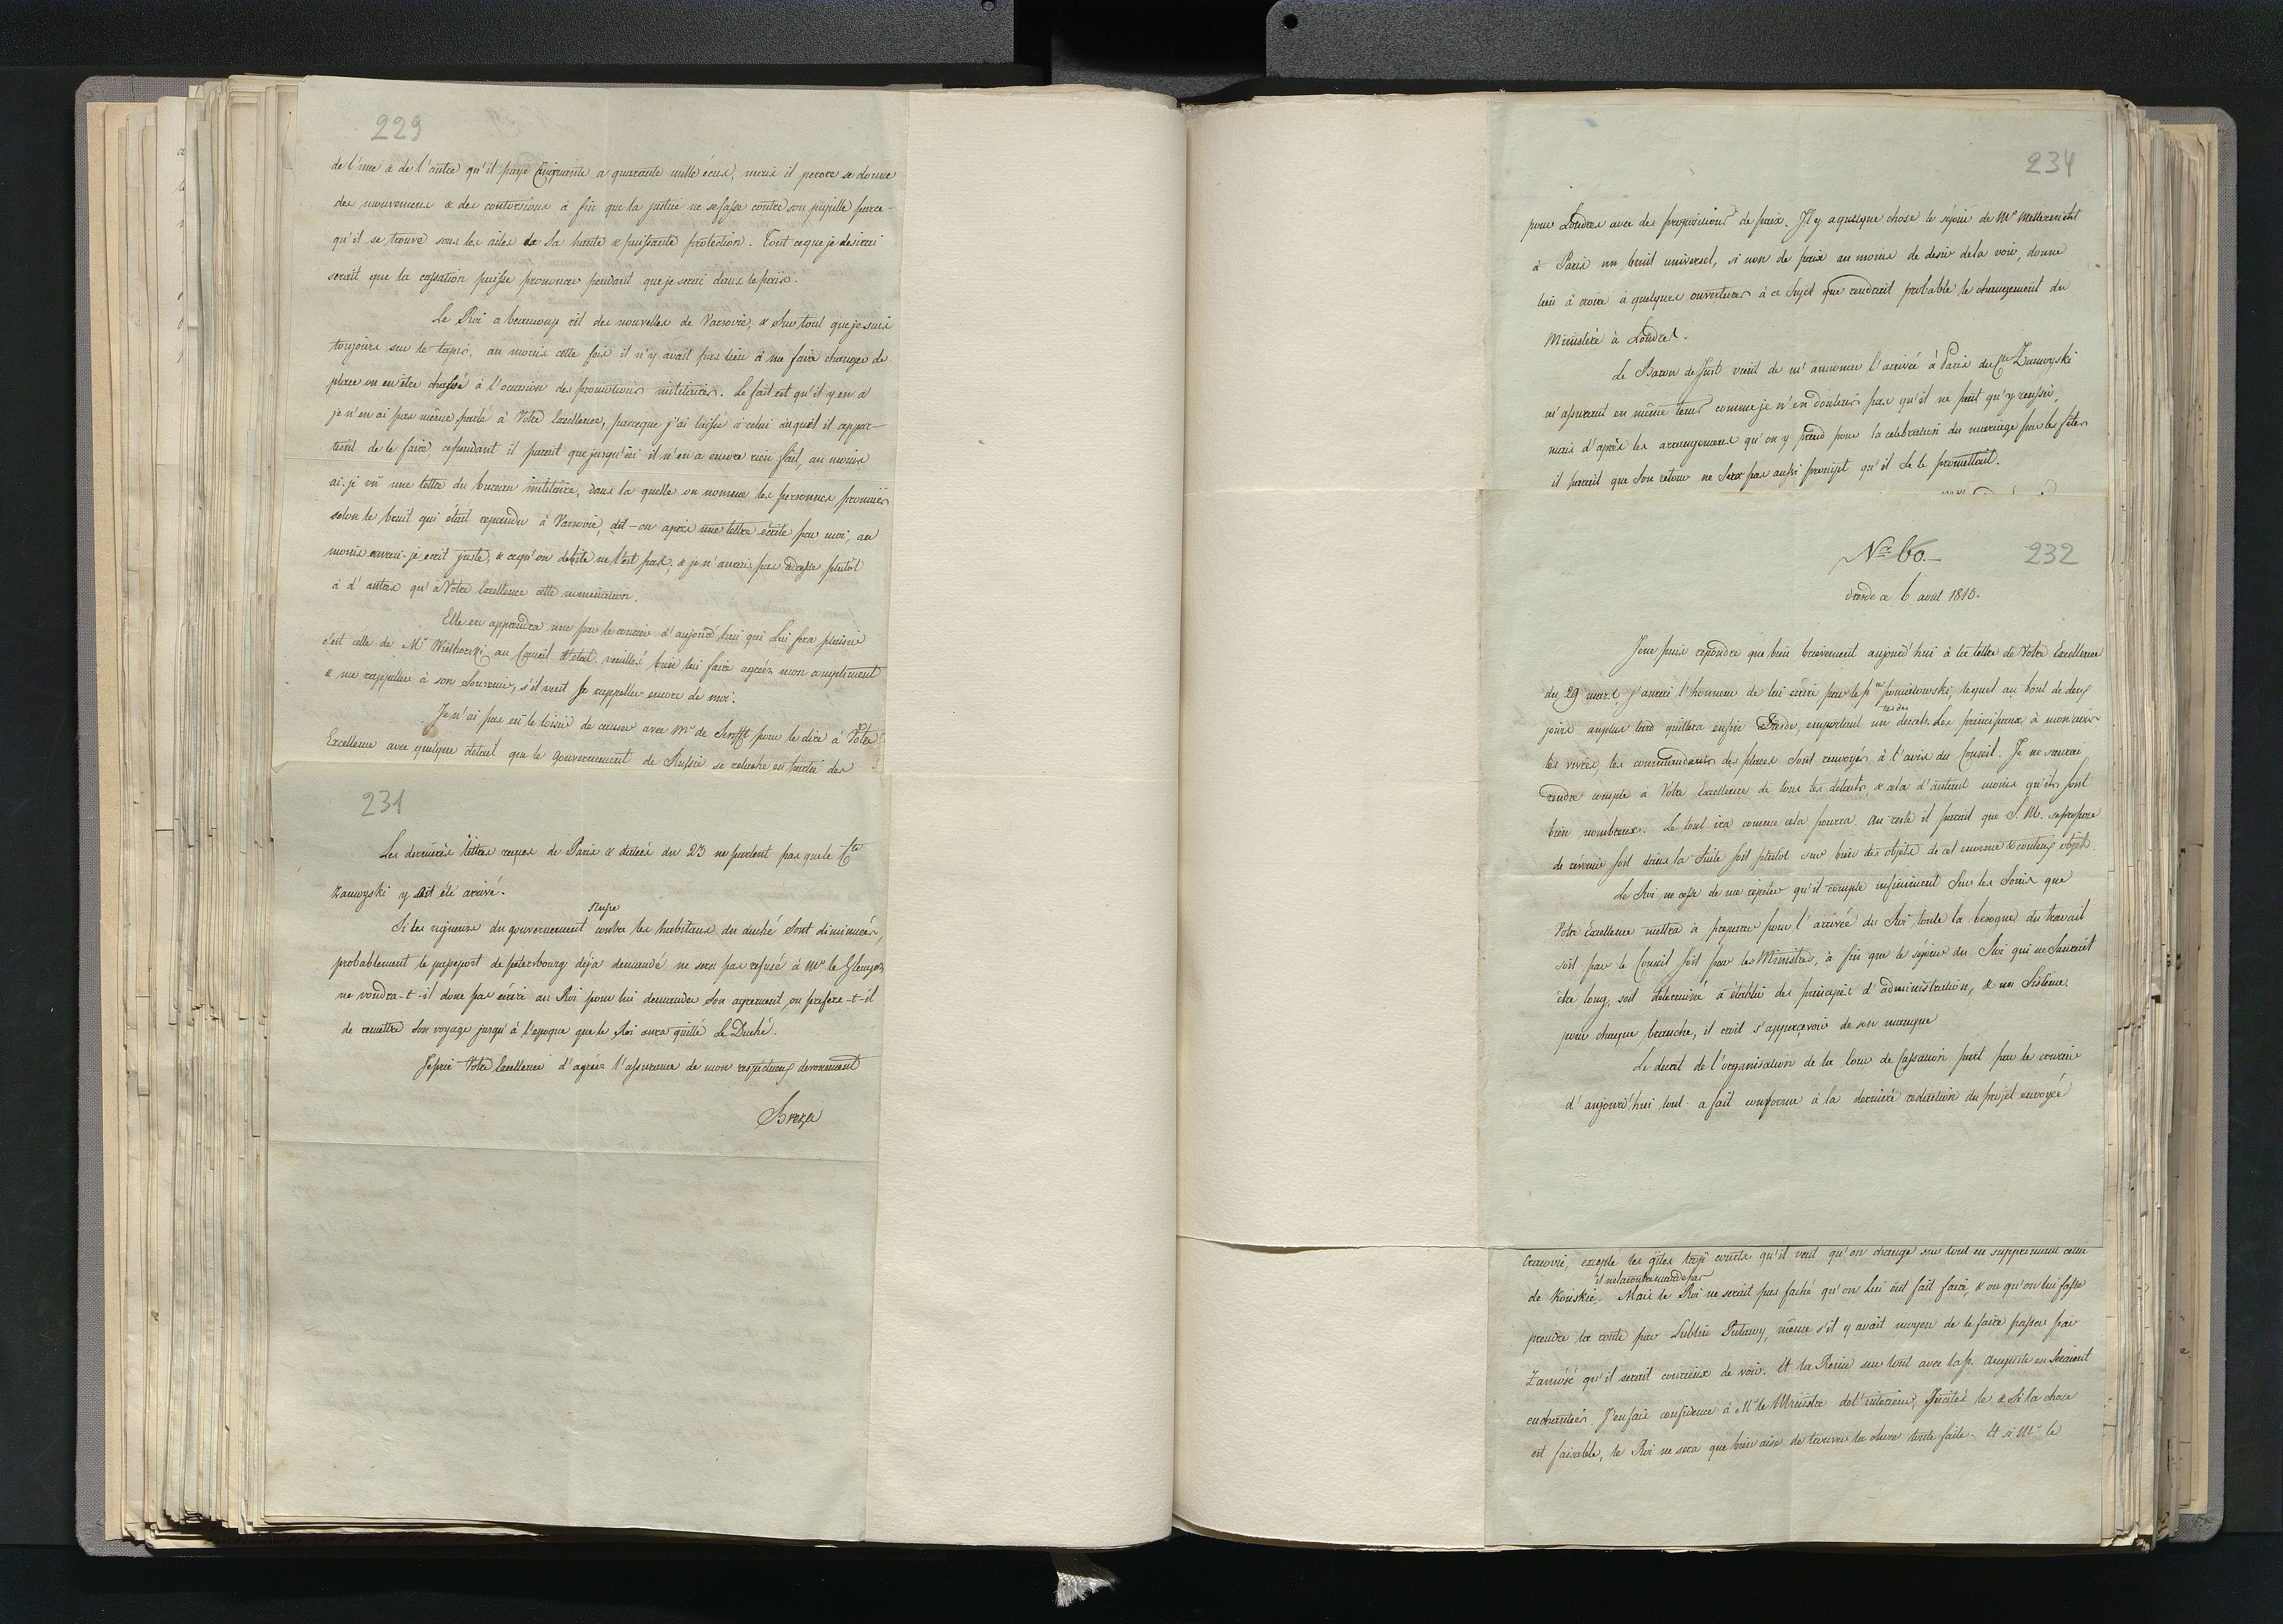 229
de l'une & de l'autre qu'il paye Cinquante a quarante mille écus, mais il perore se donne
des mouvemens & des contorsions à fin que la justice ne se fasse contre son pupille parce-
qu'il se trouve sous les ailes de Sa haute & puissante protection. Tout ce que je desirerai
serait que la cassation puisse prononcer pendant que je serai dans le païs.
Le Roi a beaucoup rit des nouvelles de Varsovie, & Sur tout que je suis
toujours sur le tapis, au moins cette fois il n'y avait pas lieu à me faire changer de
place ou en être chassé à l'occasion des promotions militaires. Le fait est qu'il y en a
je n'en ai pas même parlé à Votre Excellence, parceque j'ai laissé à celui auquel il appar-
tient de le faire, cependant il parait que jusqu'ici il n'en a encore rien fait, au moins
ai-je vû une lettre du bureau militaire, dans la quelle on nomme les personnes promües
selon le bruit qui était repandu à Varsovie, dit-on après une lettre écrite par moi, au
moins aurai-je ecrit juste, & ce qu'on debite ne l'est pas, & je n'aurais pas adressé plutôt
à d'autres qu'à Votre Excellence cette nomination.
Elle en apprendra une par le courrier d'aujourd'hui qui Lui fera plaisir
c'est celle de Mr Wielhorski au Conseil d'etat. veuillés bien lui faire agréer mon compliment
& me rappeller à son Souvenir, s'il veut se rappeller encore de moi.
Je n'ai pas eû le loisir de causer avec Mr de Senfft pour le dire à Votre
Excellence avec quelque detail que le gouvernement de Russie se relache en partie des
231
Les dernières lettres reçues de Paris & datées du 23 ne parlent pas que le Cte
Zamoyski y ait été arrivé.
Si les rigueurs du gouvernement Russe contre les habitans du duché Sont diminuées,
probablement le passeport de petersbourg déja demandé ne sera pas refusé à Mr le
ne voudra-t-il donc pas écrire au Roi pour lui demander Son agrement, ou prefere-t-il
de remettre Son voyage jusqu'à l'epoque que le Roi aura quitté Le Duché.
Je prie Votre Excellence d'agréer l'assurance de mon respectueux devouement
Breza
234
pour Londres avec des propositions de paix. Il y a quelque chose le séjour de Mr Metternicht
à Paris un bruit universel, si non de paix au moins de desir de la voir, donne
lieu à croire à quelques ouvertures à ce Sujet que rendrait probable le changement du
Ministère à Londres.
Le Baron de Just vient de m'annoncer l'arrivée à Paris du Cte Zamoyski
m'assurant en même tems comme je n'en doutais pas qu'il ne peut qu'y reussir,
mais d'après les arrangemens qu'on y prend pour la celebration du mariage par les fêtes
il parait que Son retour ne Sera pas aussi prompt qu'il Se le promettait.
Nro 60.
232
dresde ce 6 avril 1810.
Je ne puis repondre que bien brievement aujourd'hui à la lettre de Votre Excellence
du 29 mars, j'aurai l'honneur de lui écrire par le pce poniatowski, lequel au bout de deux
jours au plus tard quittera enfin Dresde, emportant un decrets. Les principaux à mon avis
les vivres, les commandants des places Sont renvoyés à l'avis du Conseil. Je ne saurai
rendre compte à Votre Excellence de tous les details, & cela d'autant moins qu'ils sont
bien nombreux. Le tout ira comme cela pourra. Au reste il parait que S. M. se propose
de révenir soit dans la Suite soit plutôt sur bien des objets de cet enorme & couteux objet.
Le Roi ne cesse de me repeter qu'il compte infiniment Sur les Soins que
Votre Excellence mettra à preparer pour l'arrivée du Roi toute la besogne du travail
soit par le Conseil soit par les Ministres, à fin que le séjour du Roi qui ne Saurait
être long, soit determiné à établir des principes d'administration, & un Sisteme.
pour chaque branche, il croit s'appercevoir de son manque
Le decret de l'organisation de la Cour de Cassation part par le courrier
d'aujourd'hui tout-a fait conforme à la dernière redaction du projet envoyée
Cracovie, excepté les gîtes trop courts qu'il veut qu'on change sur tout en supprimant celui
de Konskie. il ne la contremande pas Mais le Roi ne serait pas faché qu'on Lui eut fait faire, & ou qu'on lui fasse
prendre la route par Lublin Pulawy, même s'il y avait moyen de le faire passer par
Zamość qu'il serait courieux de voir. Et la Reine sur tout avec la p. Auguste en Seraient
enchantées. J'en fais confidence à Mr le Ministre de l'interieur, & Si la chose
est faisable, le Roi ne sera que bien aise de trouver la chose toute faite. Et si Mr le